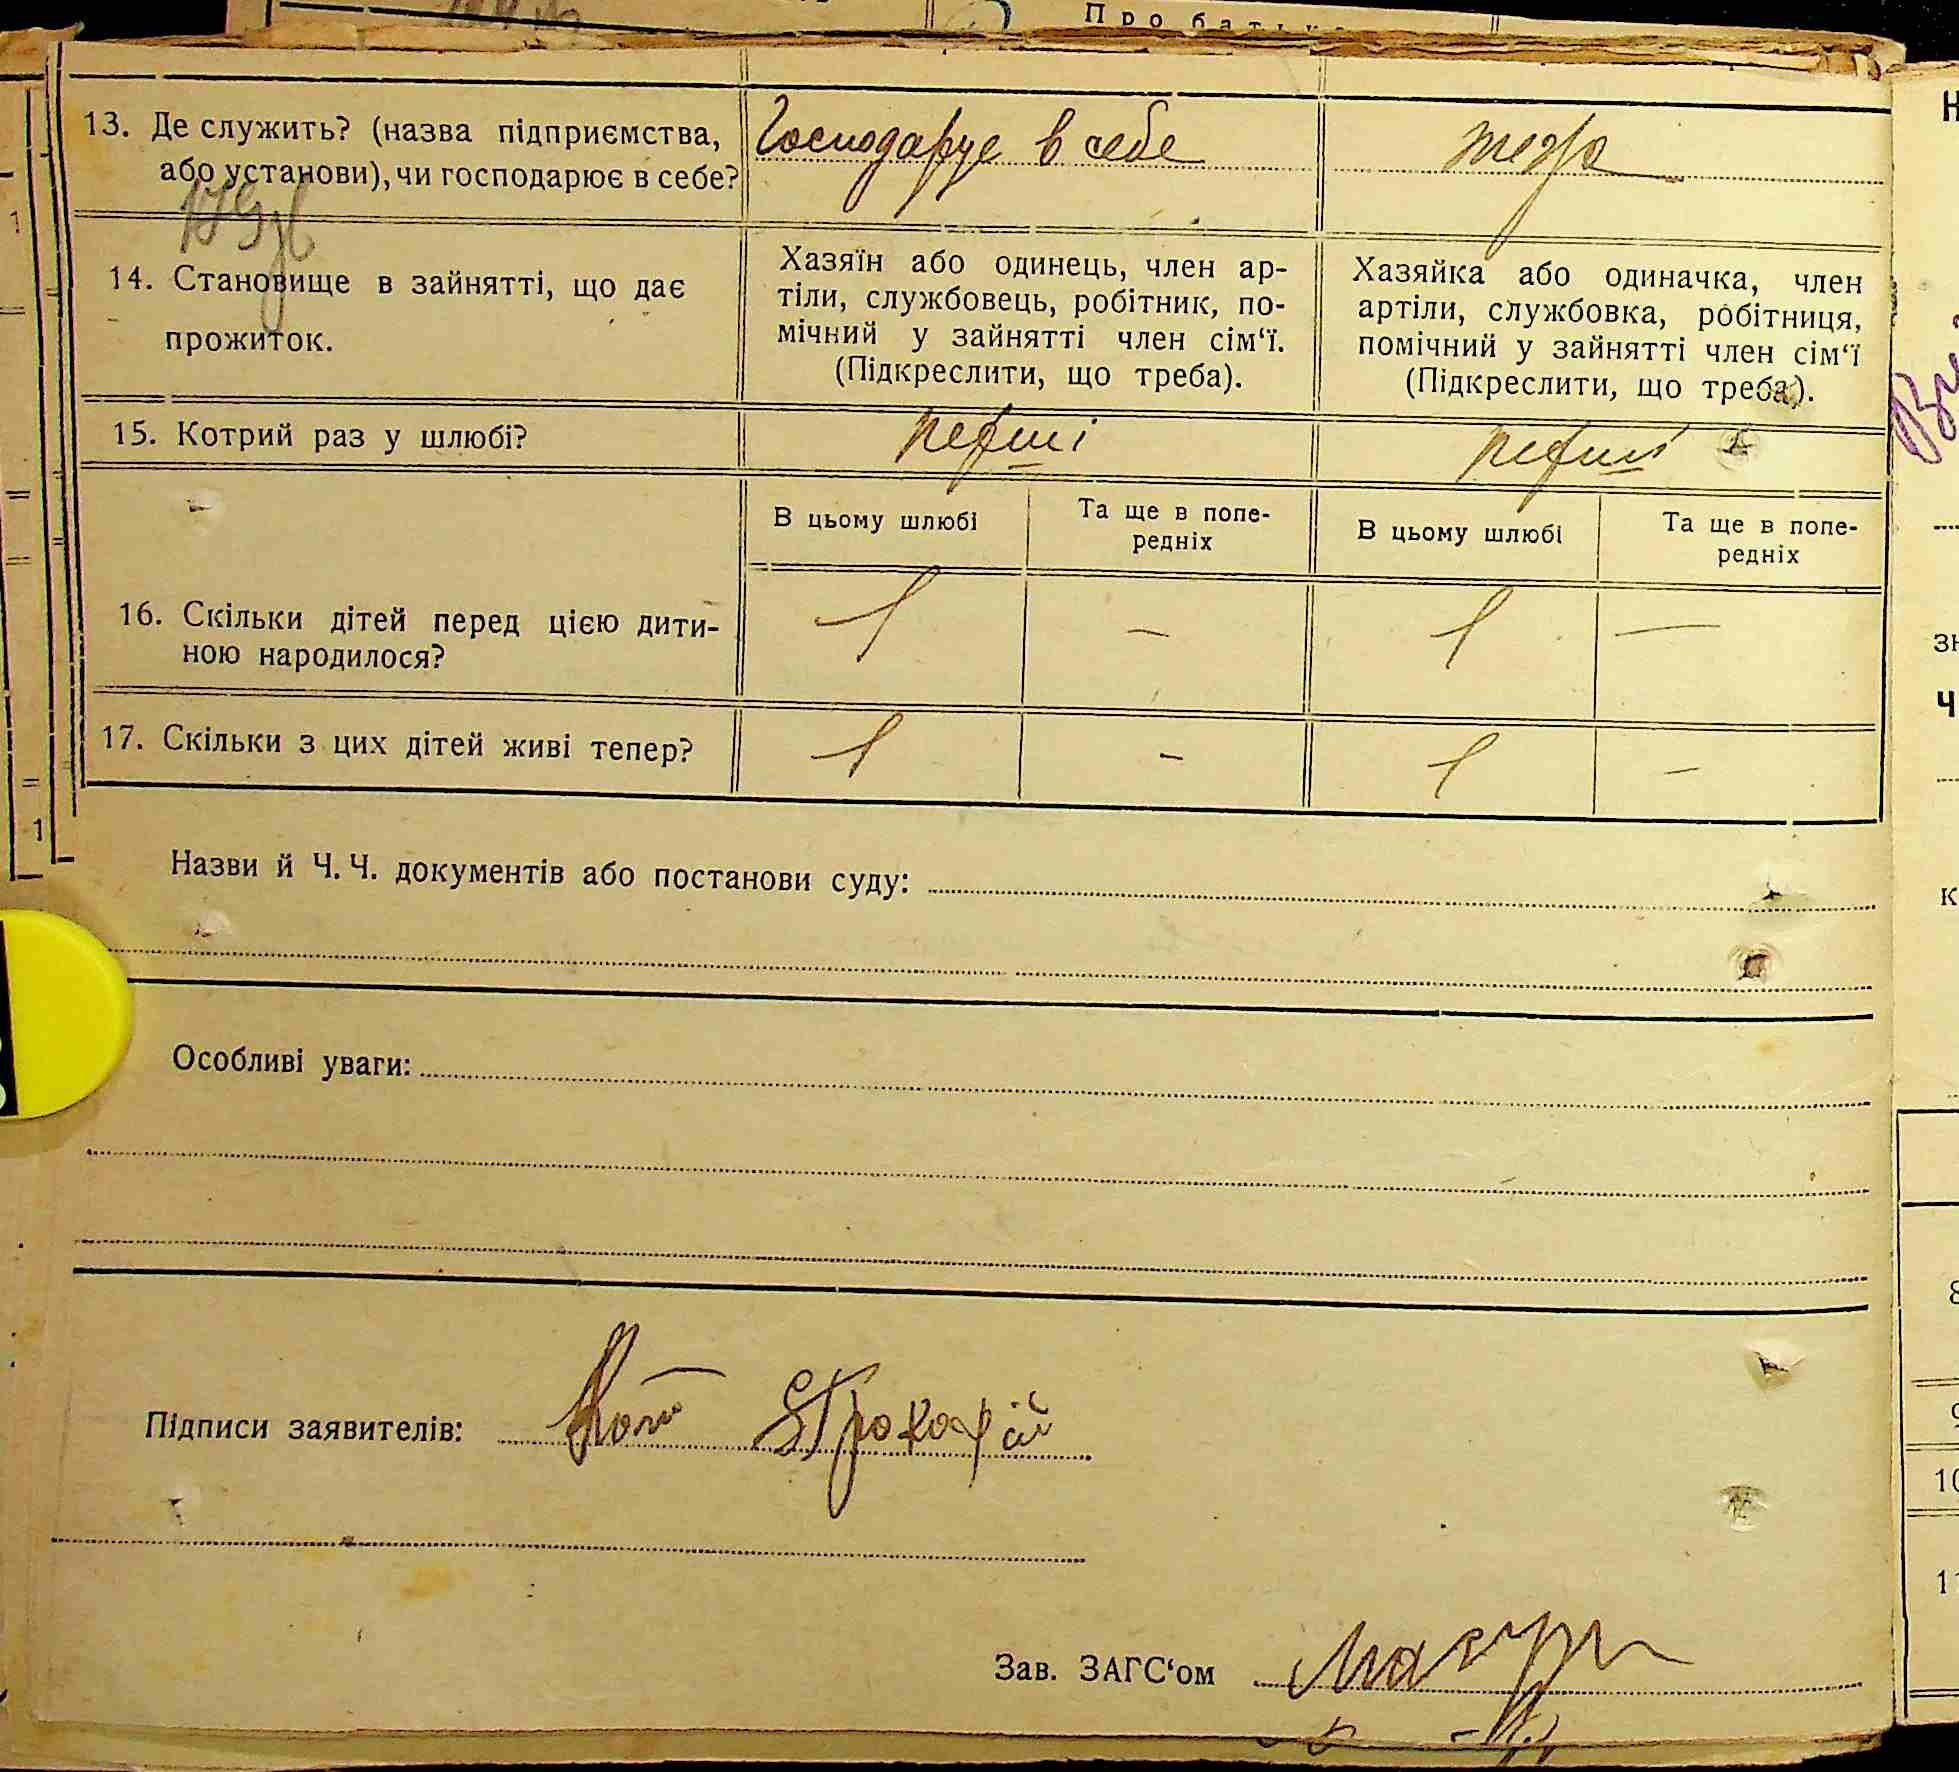 13. Де служить? (назва підприємства, Господарує в себе
або установи), чи господарює в себе?
14. Становище в зайнятті, що дає
прожиток.
Хазяїн або одинець, член ар-
тіли, службовець, робітник, по-
мічний у зайнятті член сім‘ї.
(Підкреслити, що треба).
Хазяйка або одиначка, член
артіли, службовка, робітниця,
помічний у зайнятті член сім‘ї
(Підкреслити, що треба).
15. Котрий раз у шлюбі? перші перші
В цьому шлюбі
Та ще в попе-
редніх
В цьому шлюбі
Та ще в попе-
редніх
16. Скільки дітей перед цією дити- 1 — 1 —
ною народилося?
17. Скільки з цих дітей живі тепер? 1 — 1 —
Назви й Ч. Ч. документів або постанови суду:
Особливі уваги:
Підписи заявителів: Кот Прокофій
Зав. ЗАГС‘ом